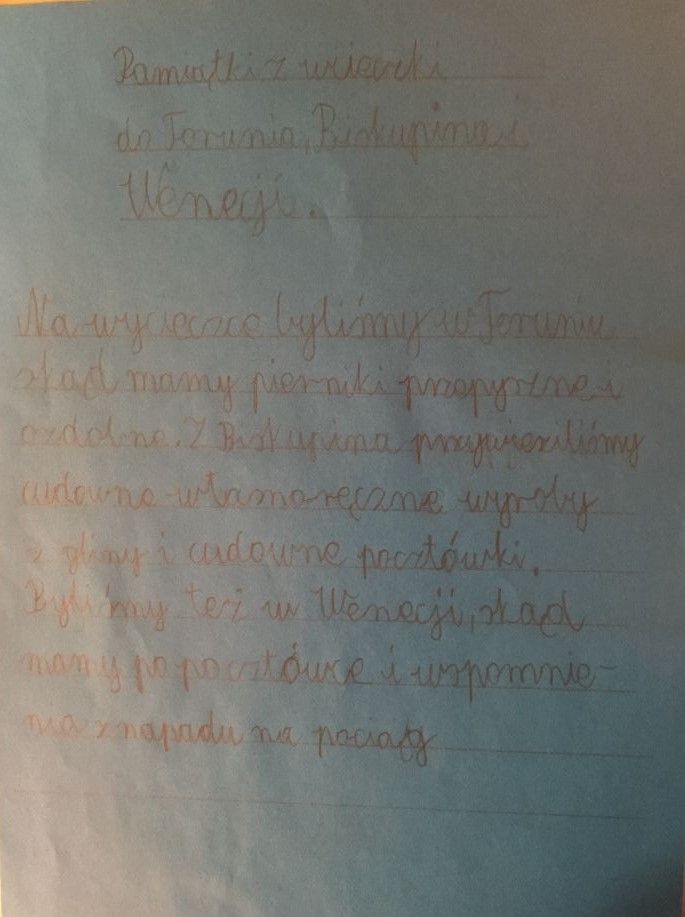 Pamiątki z wcieczki
do Torunia, Biskupina i
Wenecji.
Na wycieczce byliśmy w Toruniu
skąd mamy pierniki przepyszne i
ozdobne. Z Biskupina przywieźiliśmy
cudowne własnoręczne wyroby
z gliny i cudowne pocztówki.
Byliśmy też w Wenecji, skąd
mamy po pocztówce i wspomnie-
nia z napadu na pociąg